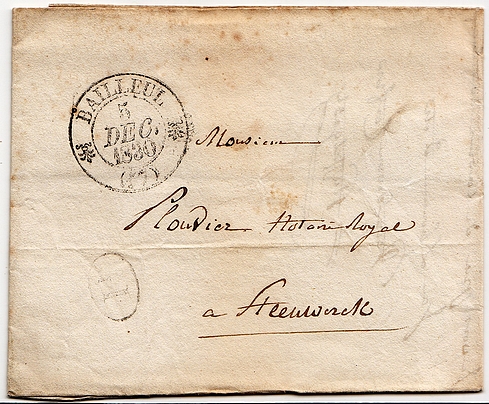 BAILLEUL
5
DEC.
1830
Monsieur
Plouvier Notaire Royal
a Steenwerck